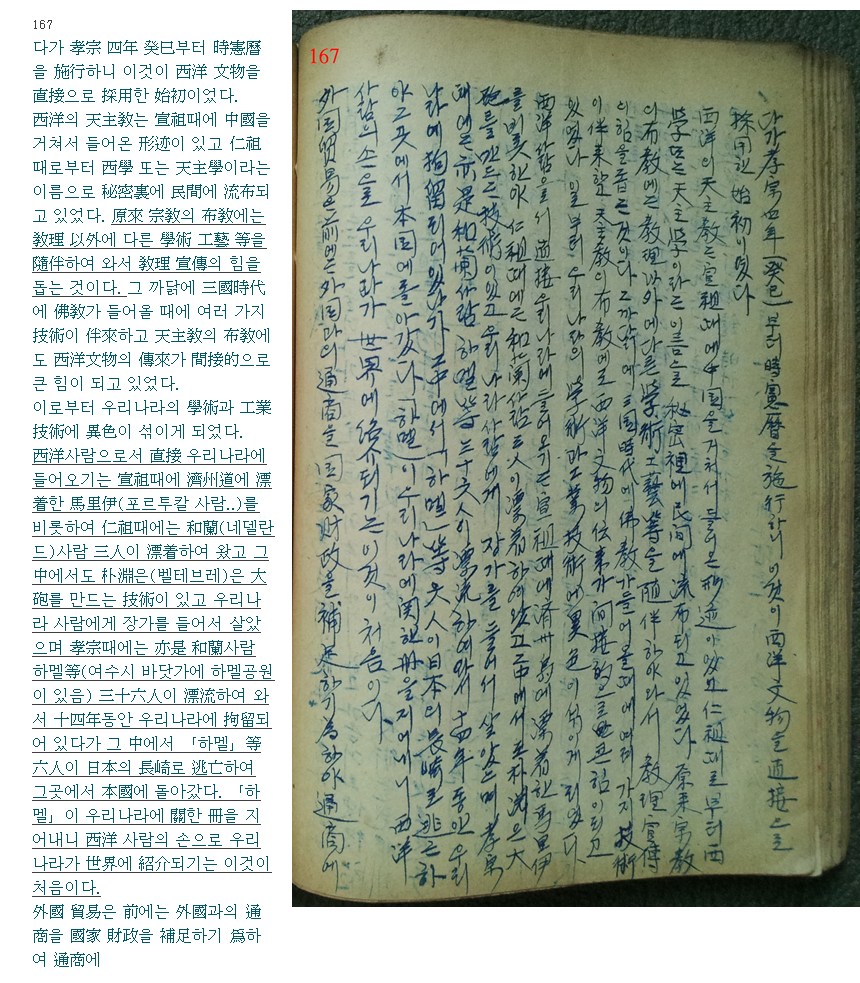 167
다가 孝宗 四年 癸巳부터 時憲曆
을 施行하니 이것이 西洋 文物을
直接으로 採用한 始初이었다.
西洋의 天主敎는 宣祖때에 中國을
거쳐서 들어온 形迹이 있고 仁祖
때로부터 西學 또는 天主學이라는
이름으로 秘密裏에 民間에 流布되
고 있었다. 原來 宗敎의 布敎에는
敎理 以外에 다른 學術 工藝 等을
隨伴하여 와서 敎理 宣傳의 힘을
돕는 것이다. 그 까닭에 三國時代
에 佛敎가 들어올 때에 여러 가지
技術이 伴來하고 天主敎의 布敎에
도 西洋文物의 傳來가 間接的으로
큰 힘이 되고 있었다.
이로부터 우리나라의 學術과 工業
技術에 異色이 섞이게 되었다.
西洋사람으로서 直接 우리나라에
들어오기는 宣祖때에 濟州道에 漂
着한 馬里伊(포르투칼 사람..)를
비롯하여 仁祖때에는 和蘭(네델란
드)사람 三人이 漂着하여 왔고 그
中에서도 朴淵은(벨테브레)은 大
砲를 만드는 技術이 있고 우리나
라 사람에게 장가를 들어서 살았
으며 孝宗때에는 亦是 和蘭사람
하멜等(여수시 바닷가에 하멜공원
이 있음) 三十六人이 漂流하여 와
서 十四年동안 우리나라에 拘留되
어 있다가 그 中에서 「하멜」等
六人이 日本의 長崎로 逃亡하여
그곳에서 本國에 돌아갔다. 「하
멜」이 우리나라에 關한 冊을 지
어내니 西洋 사람의 손으로 우리
나라가 世界에 紹介되기는 이것이
처음이다.
外國 貿易은 前에는 外國과의 通
商을 國家 財政을 補足하기 爲하
여 通商에
167
다가 孝宗四年(癸巳)부터 時憲曆을 施行하니 이것이 西洋文物을 直接으로
採用한 始初이엿다
西洋의 天主敎는 宣祖때에 中国을 거쳐서 들어온 形迹이 있고 仁祖때로부터 西
學 또는 天主學이라는 이름으로 秘密裡에 民间에 流布되고 있었다. 原来 宗敎
의 布敎에는 敎理 以外에 다른 學術 工藝 等을 隨伴하야와서 敎理宣傳
의 힘을 돕는 것이다 그 까닭에 三国時代에 佛敎가 들어올 때에 여러 가지 技術
이 伴来했고 天主敎의 布敎에도 西洋文物의 伝来가 间接的으로 힘이 되고
있었다 일로부터 우리나라의 學術과 工業技術에 異色이 섞이게 되였다.
西洋사람으로서 直接 우리나라에 들어오기는 宣祖때에 済州島에 漂着한 馬里伊
를 비롯하야 仁祖때에는 和蘭사람 三人이 漂着하여왔고 그中에서도 朴淵은 大
砲를 만드는 技術이 있고 우리나라 사람에게 장가를 들어서 살았으며 孝宗
때에는 亦是 和蘭사람 하멜等 三十六人이 漂流하여와서 十四年동안 우리
나라에 拘留되어 있다가 그中에서 「하멜」等 六人이 日本의 長崎로 逃亡하
야 그곳에서 本国에 돌아갔다 「하멜」이 우리나라에 関한 冊을 지어내니 西洋
사람의 손으로 우리나라가 世界에 紹介되기는 이것이 처음이다
外国貿易은 前에는 外国과의 通商을 国家財政을 補足하기 為하야 通商에